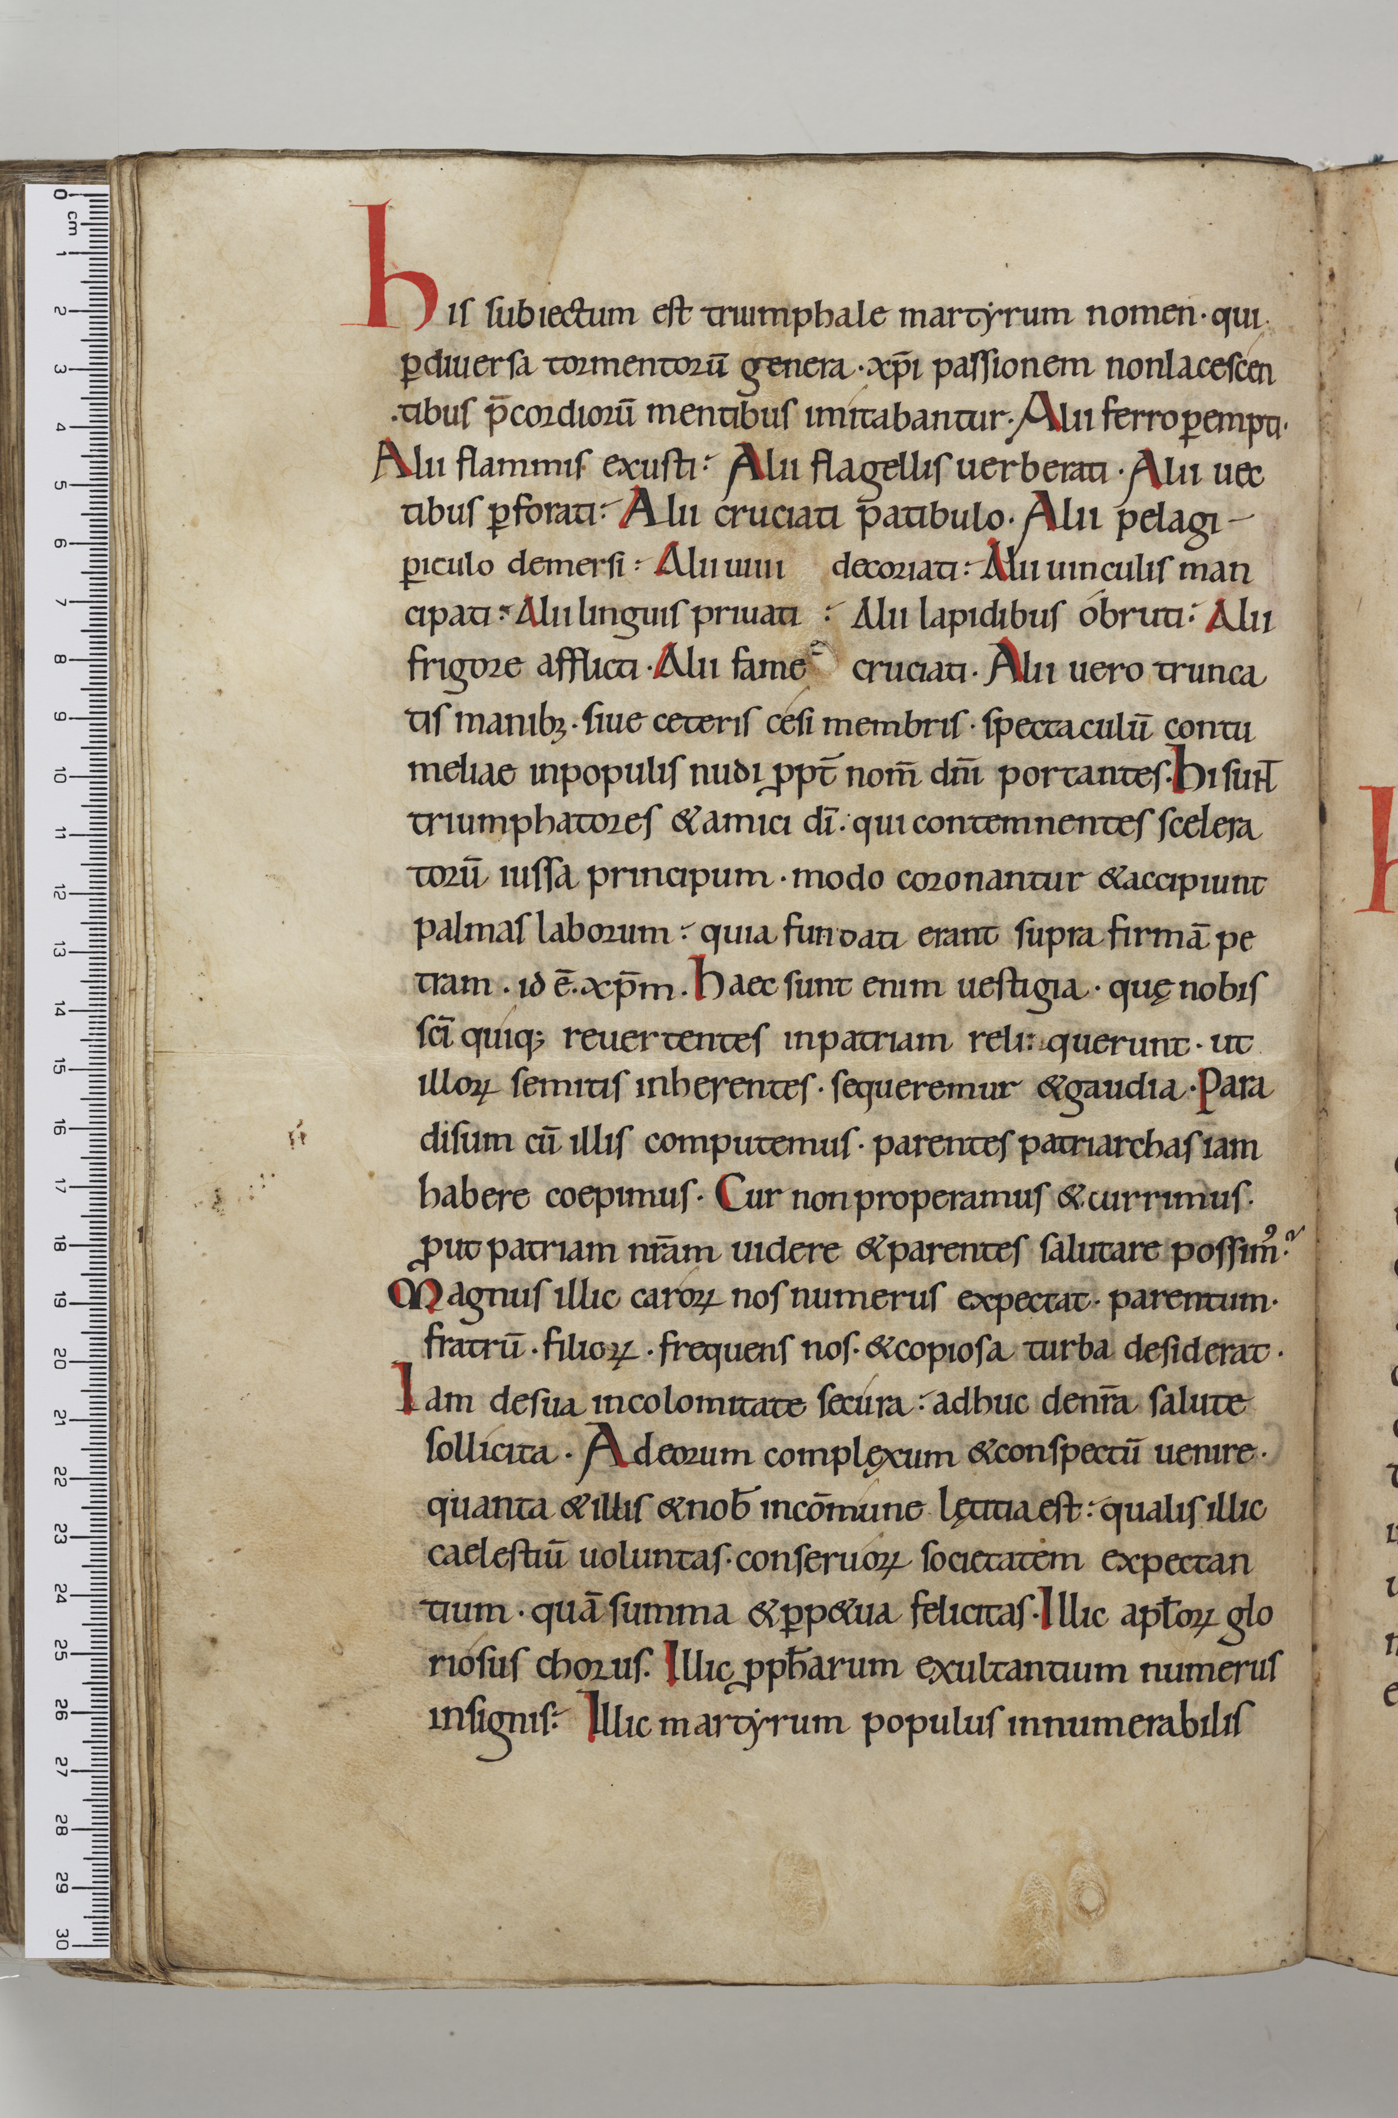 his subiectum est triumphale martyrum nomen · qui
ꝑdiuersa tormentorū genera · xp̄i passionem nonlacescen
tibus p̄cordiorū mentibus imitabantur · Alii ferro ꝑempti ·
Alii flammis exusti : Alii flagellis uerberati · Alii uec
tibus ꝑforati : Alii cruciati patibulo · Alii pelagi
ꝑiculo demersi : Alii uiui decoriati : Alii uinculis man
cipati : Alii linguis priuati : Alii lapidibus obruti : Alii
frigore afflicti · Alii fame cruciati · Alii uero trunca
tis manibꝫ · siue ceteris cesi membris · spectaculū contu
meliae inpopulis nudi ꝓpt̄ nom̄ dn̄i portantes · hi sunt
triumphatores & amici dī · qui contemnentes scelera
torū iussa principum · modo coronantur & accipiunt
palmas laborum : quia fundati erant supra firmā pe
tram · id ē · xp̄m · haec sunt enim uestigia · quę nobis
sc̄i quiqꝫ reuertentes inpatriam relinquerunt · ut
illoꝝ semitis inherentes · sequeremur & gaudia · Para
disum cū illis computemus · parentes patriarchas iam
habere coepimus · Cur non properamus & currimus ·
ꝓut patriam nr̄am uidere & parentes salutare possimꝰ ·
Magnus illic caroꝝ nos numerus expectat · parentum ·
fratrū · filioꝝ · frequens nos · & copiosa turba desiderat ·
Iam desua incolomitate secura : adhuc denr̄a salute
sollicita · Adeorum complęxum & conspectū uenire ·
quanta & illis & nob̄ incōmune lętitia est : qualis illic
caelestiū uoluntas · conseruoꝝ societatem expectan
tium · quā summa & ꝑp&ua felicitas · Illic apl̄oꝝ glo
riosus chorus · Illic ꝓph̄arum exultantium numerus
insignis : Illic martyrum populus innumerabilis